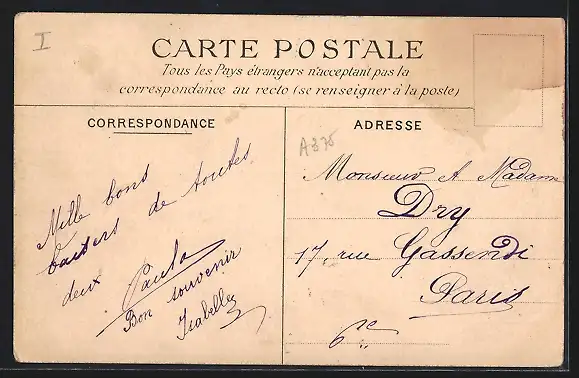 I
CARTE POSTALE
Tous les Pays étrangers n'acceptant pas la
correspondance au recto (se renseigner à la poste)
CORRESPONDANCE
Mille bons
baisers de toutes
deux
Paula
Bon souvenir
Isabelle
ADRESSE
A375
Monsieur et Madame
Dry
17, rue Gassendi
Paris